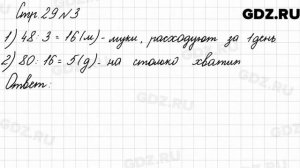 GDZ.RU
Стр 29 №3
1) 48:3=16(м)-муки, расходуют за 1 день
2) 80:16=5(д)-на столько хватит
Ответ: